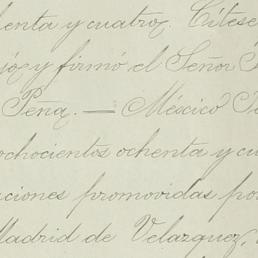 henta y cuatro. Cítese
y firmó el Señor
Pena. — México
ochocientos ochenta y cu
aciones promovidas por
Madrid de Velazquez,